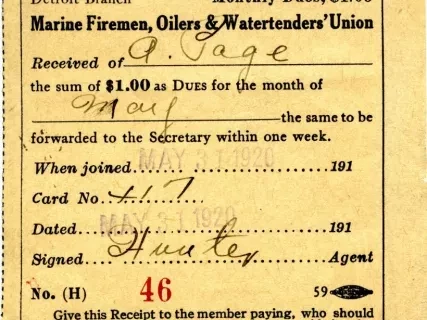 Detroit Branch Monthly Dues, $1.00
Marine Firemen, Oilers & Watertenders' Union
Received of A. Page
the sum of $1.00 as DUES for the month of
May the same to be
forwarded to the Secretary within one week.
When joined MAY 31 1920 191
Card No. 117
Dated MAY 31 1920 191
Signed Hunter Agent
No. (H) 46 59
Give this Receipt to the member paying, who should